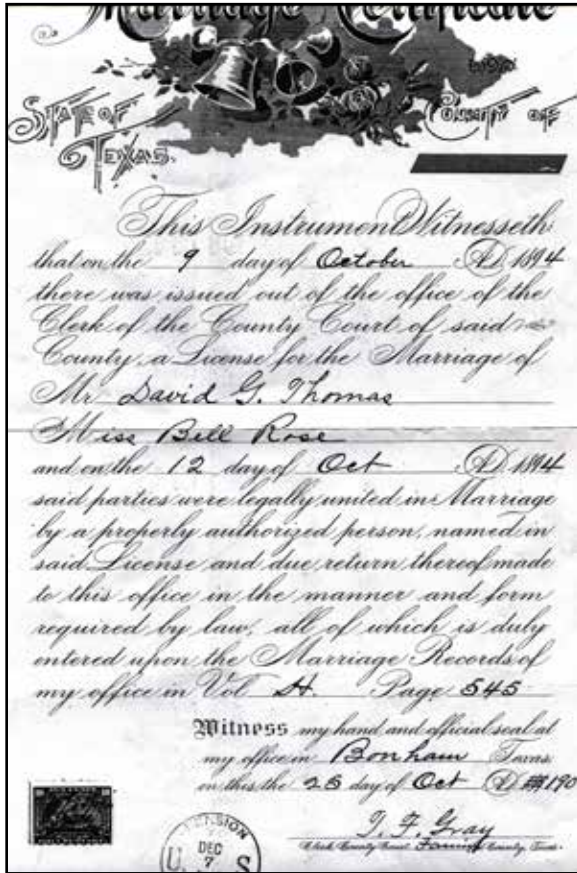 Marriage Certificate
STATE OF
TEXAS.
COUNTY OF
This Instrument Witnesseth
that on the 9 day of October A.D. 1894
there was issued out of the office of the
Clerk of the County Court of said
County, a License for the Marriage of
Mr David G. Thomas
Miss Bell Rose
and on the 12 day of Oct A.D. 1894
said parties were legally united in Marriage
by a properly authorized person, named in
said License and due return thereof made
to this office in the manner and form
required by law, all of which is duly
entered upon the Marriage Records of
my office in Vol H. Page 545
Witness my hand and official seal at
my office in Bonham Texas
on this the 25 day of Oct A.D. 190
T. F. Gray
Clerk County Court, Fannin County, Texas
DEC
7
U. S